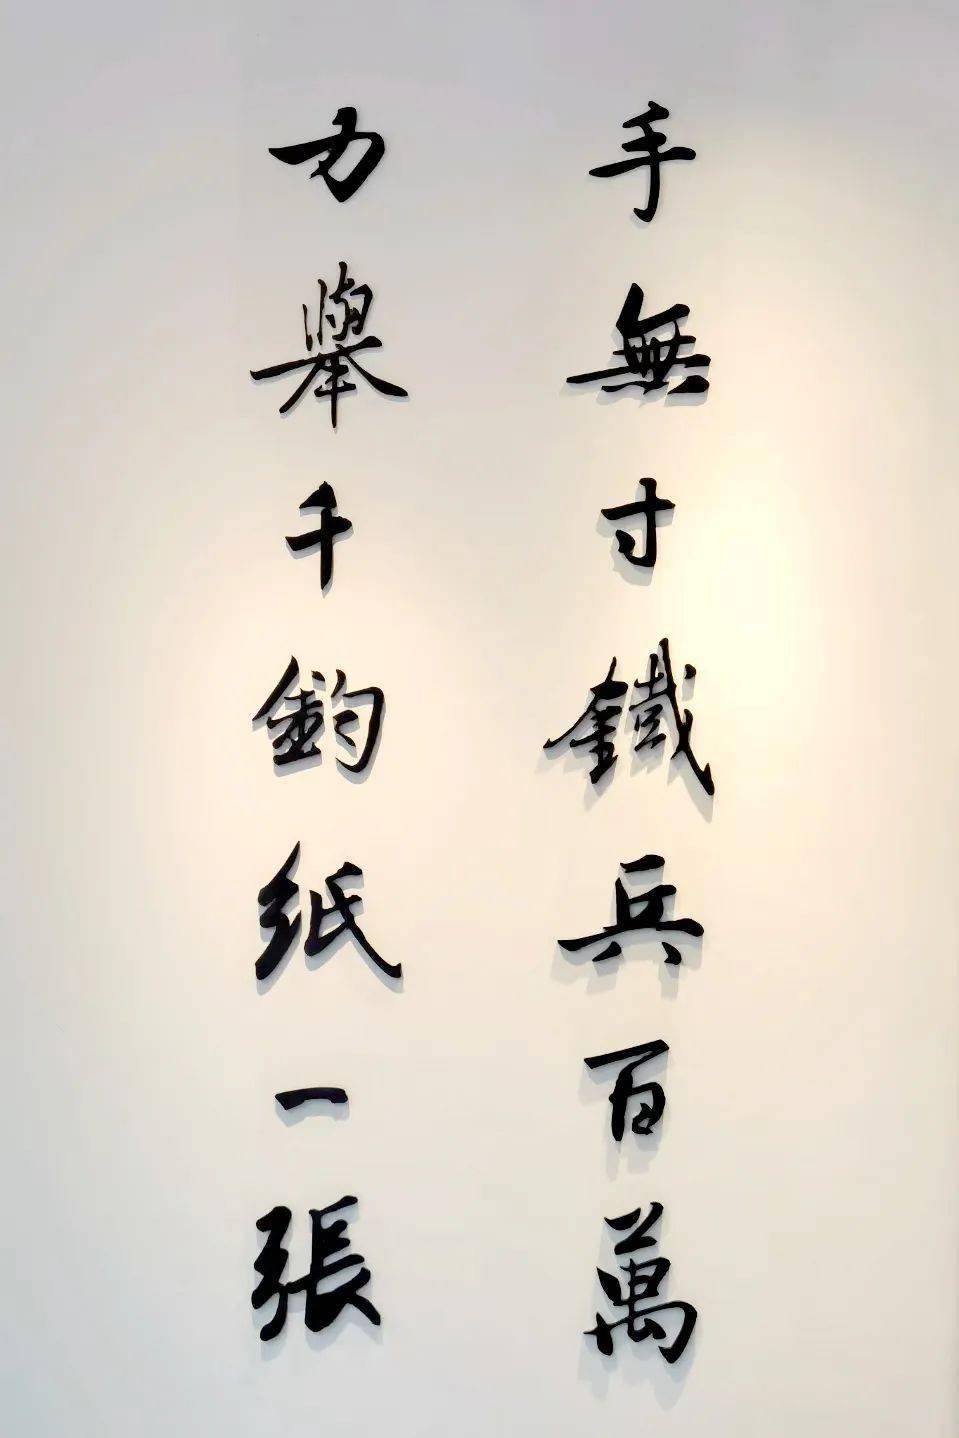 手無寸鐵兵百萬
力舉千鈞紙一張